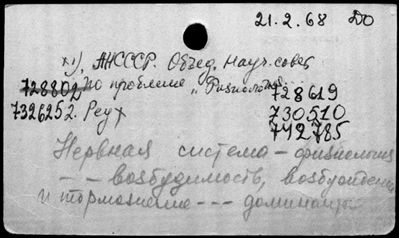 21.2.68 ДО
XI), АНСССР. Объед. науч. совет
728802 по проблеме „Физиология... 728619
732625 2. Реух 730510
742785
Нервная система – физиология
– – возбудимость, возбуждение
и торможение – – – доминанта